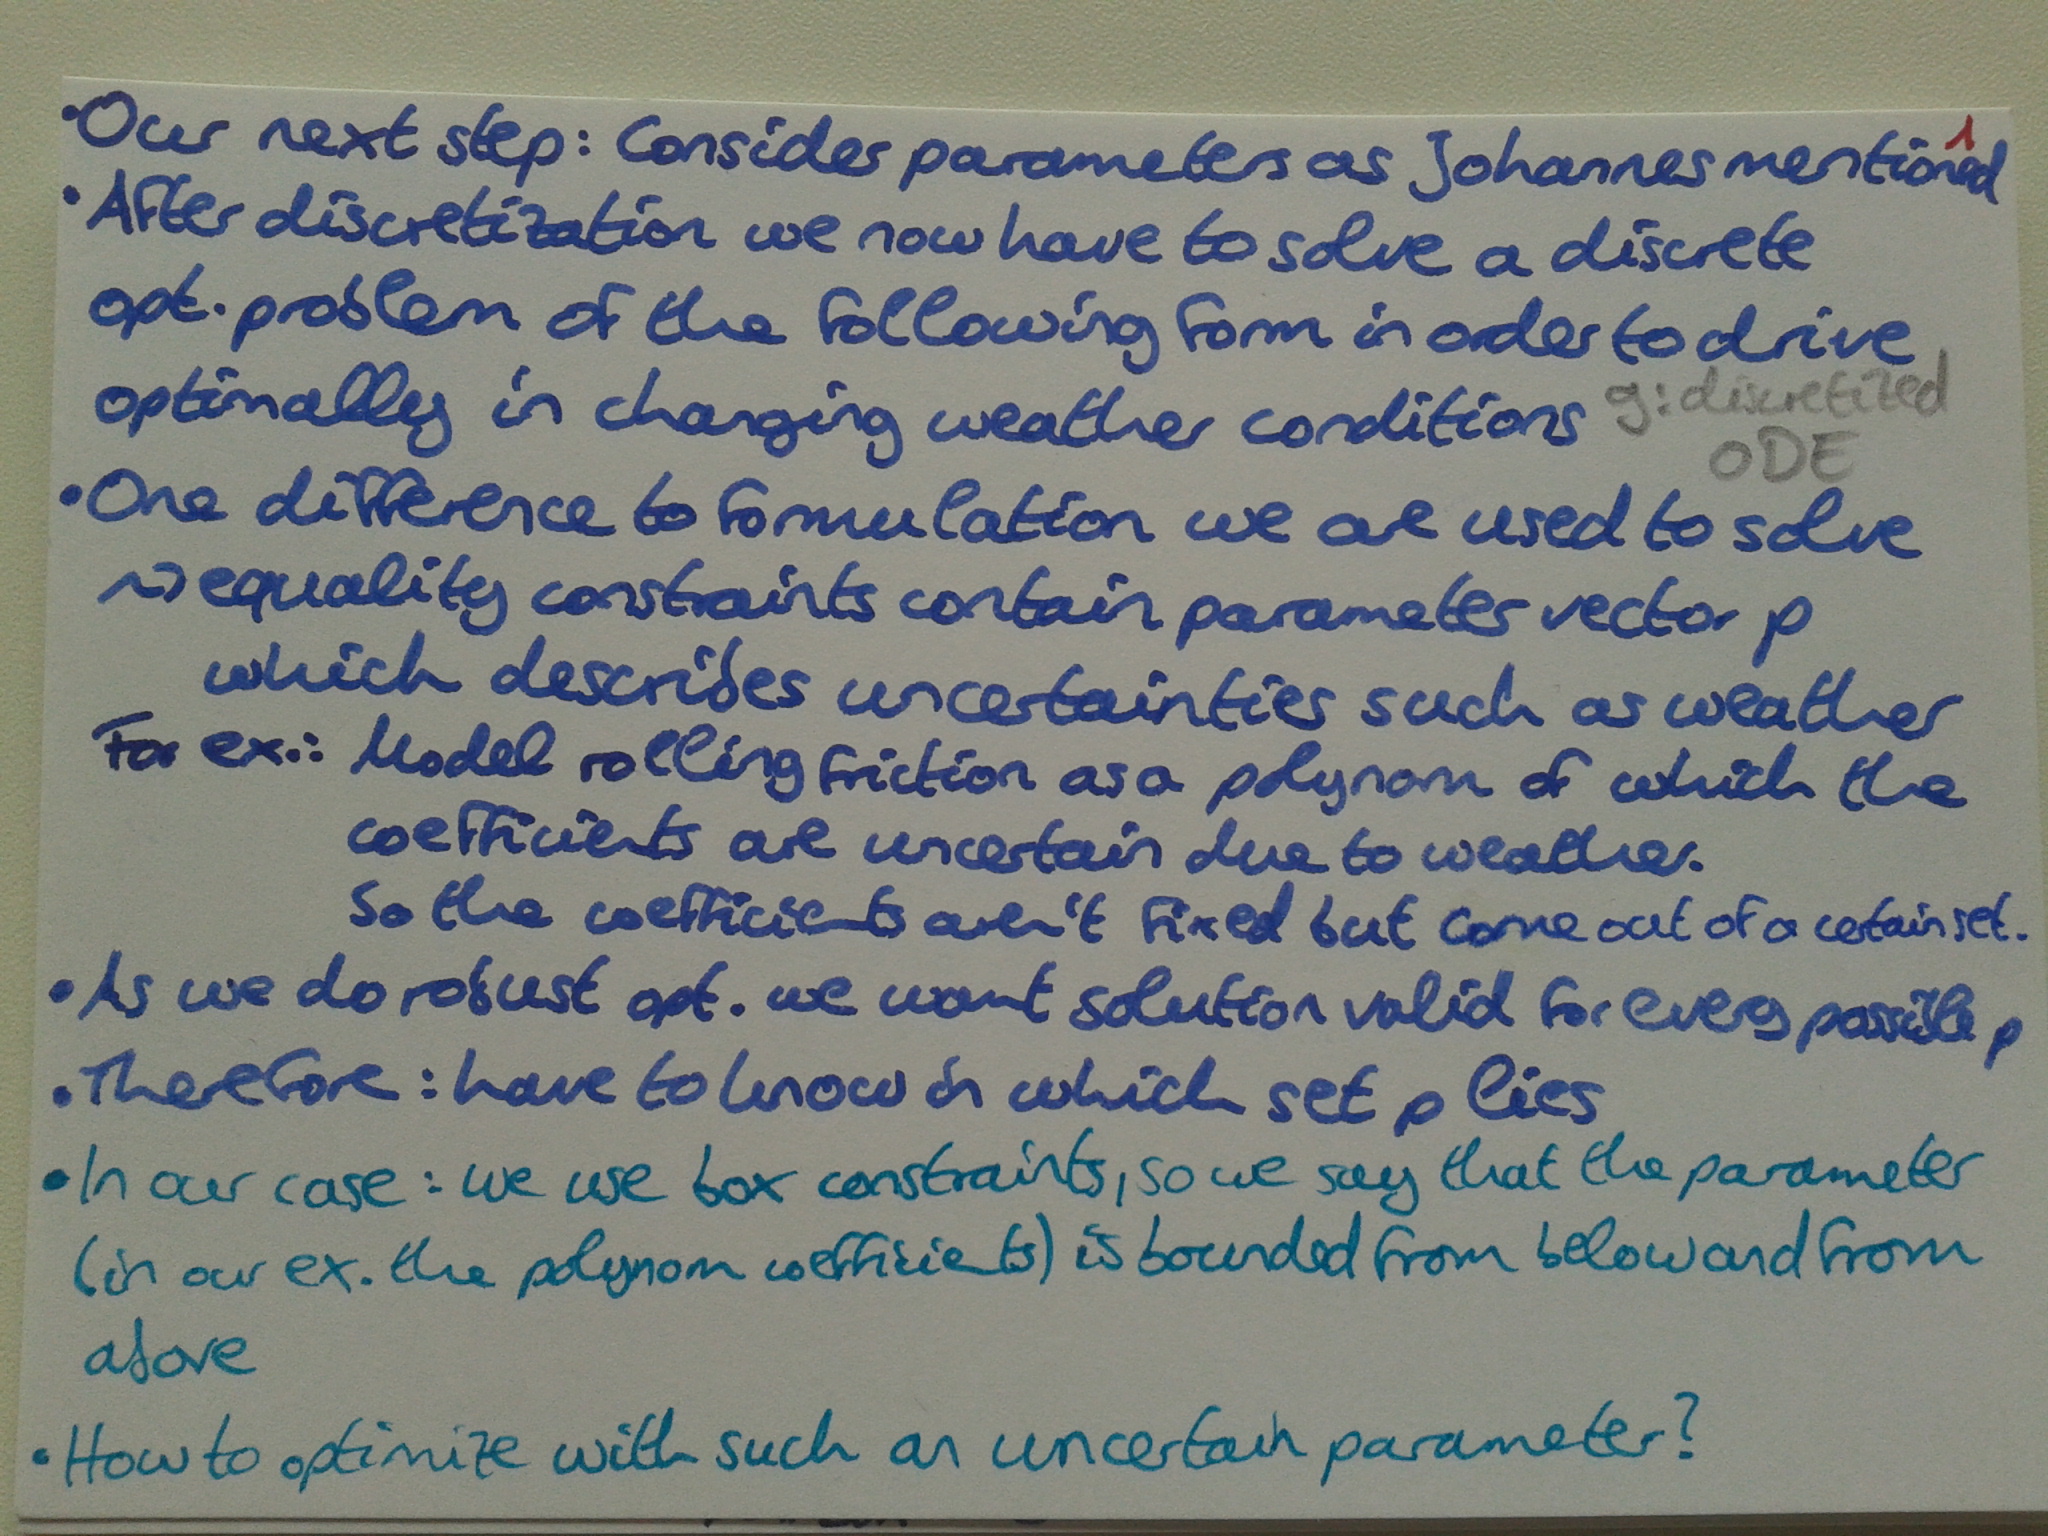 1
• Our next step: Consider parameters as Johannes mentioned
• After discretization we now have to solve a discrete
opt. problem of the following form in order to drive
optimally in changing weather conditions
g: discretized
ODE
• One difference to formulation we are used to solve
~> equality constraints contain parameter vector p
which describes uncertainties such as weather
For ex.: Model rolling friction as a polynom of which the
coefficients are uncertain due to weather.
So the coefficients aren't fixed but come out of a certain set.
• As we do robust opt. we want solution valid for every possible p
• Therefore: have to know in which set p lies
• In our case: we use box constraints, so we say that the parameter
(in our ex. the polynom coefficients) is bounded from below and from
above
• How to optimize with such an uncertain parameter?